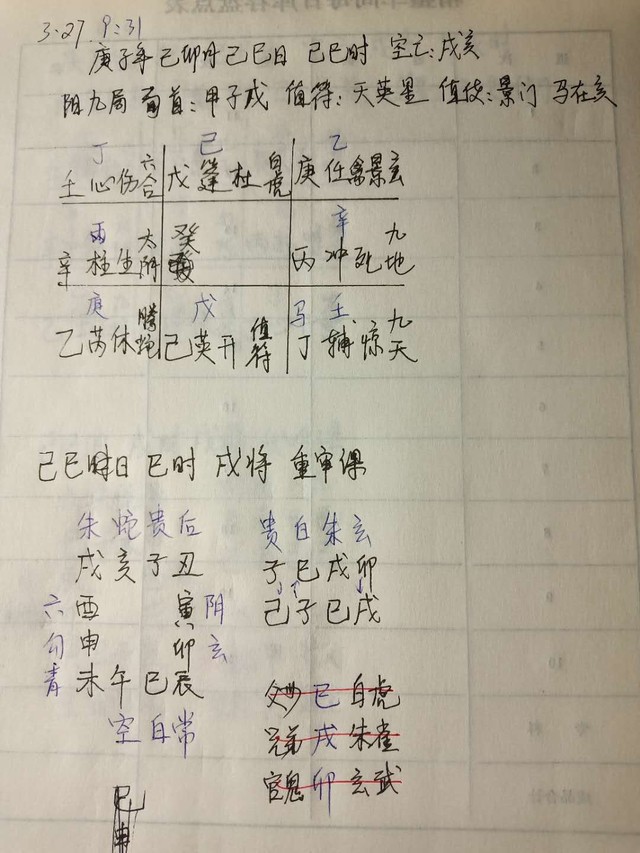 3.27. 9:31
庚子年 己卯月 己巳日 己巳时 空亡:戌亥
阳九局 旬首:甲子戊 值符:天英星 值使:景门 马在亥
丁 六 己 白 乙
壬心伤合 戊蓬杜虎 庚任禽景玄
丙 太 癸 辛 九
辛柱生阴 丙冲死地
庚 腾 戊 值 马 壬 九
乙芮休蛇 己英开符 丁辅惊天
己巳日 巳时 戌将 重审课
朱蛇贵后 贵白朱玄
戌亥子丑 子巳戌卯
六酉 寅阴 己子巳戌
勾申 卯玄
青未午巳辰 父母 巳 白虎
空白常 兄弟 戌 朱雀
官鬼 卯 玄武